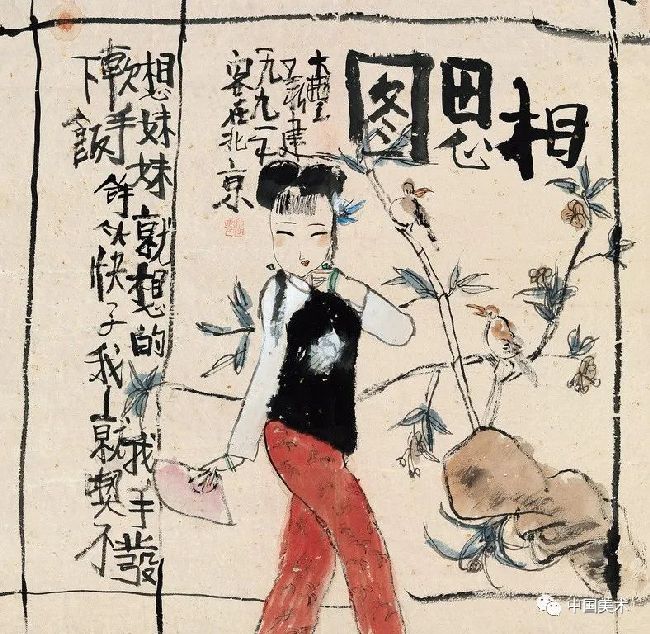 相思图
大豐
新建
一九九一年
客在北京
想妹妹就想的我手發
軟手快子我就契不
下飯
中国美术